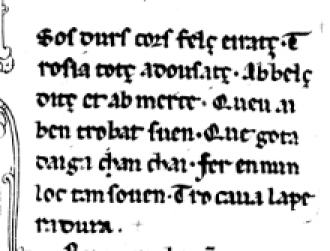 Sos durs cors felç eiratç · E
rosia totç adousatç · Ab belç
ditç et ab merce · Queu ai
ben trobat suen · Que gota
daiga cham chai · fer en mun
loc tam souen · Tro caua la pe
ra dura .